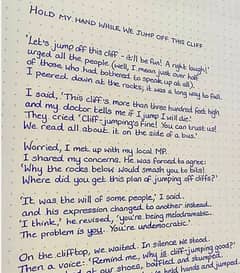 HOLD MY HAND WHILE WE JUMP OFF THIS CLIFF
'Let's jump off this cliff – it'll be fun! A right laugh!'
urged all the people (well, I mean just over half
of those who had bothered to speak up at all).
I peered down at the rocks; it was a long way to fall.
I said, 'This cliff's more than three hundred feet high
and my doctor tells me if I jump I will die.'
They cried 'Cliff-jumping's fine! You can trust us!
We read all about it on the side of a bus.'
Worried, I met up with my local MP.
I shared my concerns. He was forced to agree:
'Why the rocks below would smash you to bits!
Where did you get this plan of jumping off cliffs?'
'It was the will of some people,' I said
and his expression changed to another instead.
'I think,' he revised, 'you're being melodramatic.
The problem is you. You're undemocratic.'
On the clifftop, we waited. In silence we stood.
Then a voice: 'Remind me, why is cliff-jumping good?'
at our shoes, baffled and stumped.
hands and jumped.